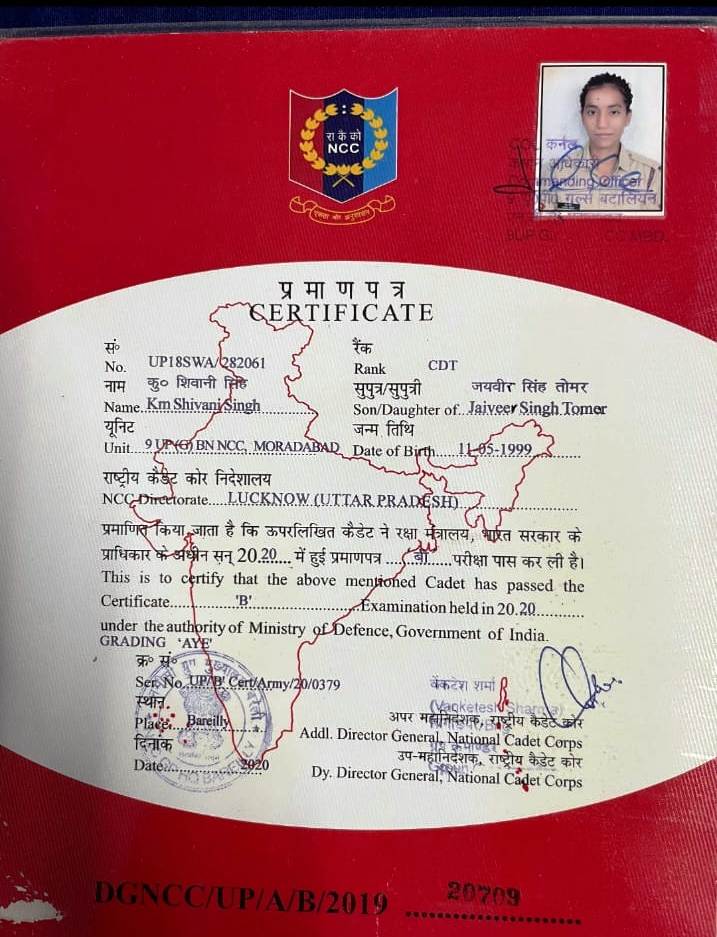 रा कै को
NCC
एकता और अनुशासन
कर्नल
कमान अधिकारी
Commanding Officer
गर्ल्स बटालियन
प्र मा ण प त्र
CERTIFICATE
सं०
No. UP18SWA/282061
रैंक
Rank CDT
नाम कु० शिवानी सिंह
Name Km Shivani Singh
सुपुत्र/सुपुत्री जयवीर सिंह तोमर
Son/Daughter of Jaiveer Singh Tomer
यूनिट
Unit 9 UP(G) BN NCC, MORADABAD
जन्म तिथि
Date of Birth 11-05-1999
राष्ट्रीय कैडेट कोर निदेशालय
NCC Directorate LUCKNOW (UTTAR PRADESH)
प्रमाणित किया जाता है कि ऊपरलिखित कैडेट ने रक्षा मंत्रालय, भारत सरकार के
प्राधिकार के अधीन सन् 2020 में हुई प्रमाणपत्र 'बी' परीक्षा पास कर ली है।
This is to certify that the above mentioned Cadet has passed the
Certificate 'B' Examination held in 2020
under the authority of Ministry of Defence, Government of India.
GRADING 'AYE'
क्र० सं०
Ser. No. UP/'B' Cert/Army/20/0379
स्थान
Place Bareilly
दिनांक
Date 2020
वेंकटेश शर्मा
अपर महानिदेशक, राष्ट्रीय कैडेट कोर
Addl. Director General, National Cadet Corps
उप-महानिदेशक, राष्ट्रीय कैडेट कोर
Dy. Director General, National Cadet Corps
DGNCC/UP/A/B/2019 20709